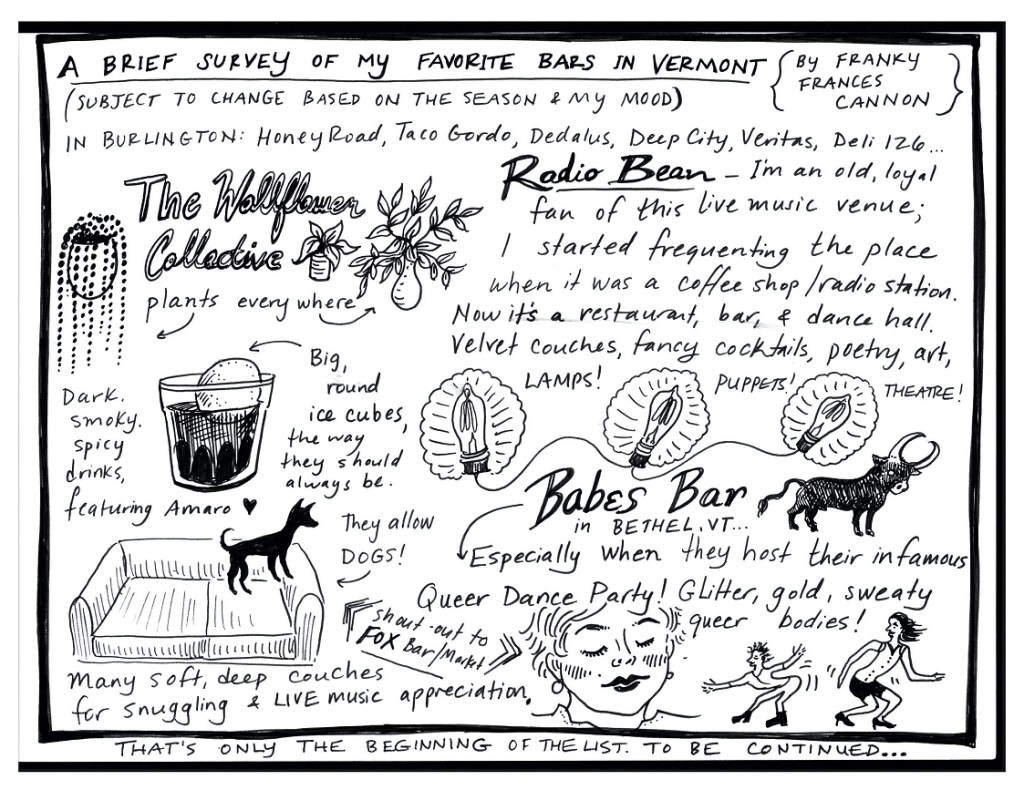 A BRIEF SURVEY OF MY FAVORITE BARS IN VERMONT
{BY FRANKY
FRANCES
CANNON}
(SUBJECT TO CHANGE BASED ON THE SEASON & MY MOOD)
IN BURLINGTON: Honey Road, Taco Gordo, Dedalus, Deep City, Veritas, Deli 126...
The Wallflower
Collective
plants everywhere
Big,
round
ice cubes,
the way
they should
always be.
Dark,
smoky,
spicy
drinks,
featuring Amaro ♥
They allow
DOGS!
Many soft, deep couches
for snuggling & LIVE music appreciation.
Radio Bean – I'm an old, loyal
fan of this live music venue;
I started frequenting the place
when it was a coffee shop/radio station.
Now it's a restaurant, bar, & dance hall.
Velvet couches, fancy cocktails, poetry, art,
LAMPS! PUPPETS! THEATRE!
Babes Bar
in BETHEL, VT...
Especially when they host their infamous
Queer Dance Party! Glitter, gold, sweaty
queer bodies!
shout-out to
FOX Bar/Market
THAT'S ONLY THE BEGINNING OF THE LIST. TO BE CONTINUED...